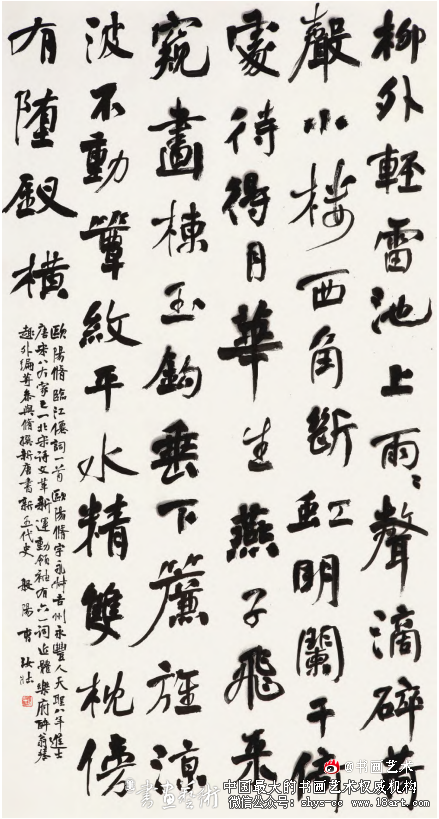 柳外輕雷池上雨〻聲滴碎荷
聲小樓西角斷虹明闌干倚
處待得月華生燕子飛來
窺畫棟玉鉤垂下簾旌涼
波不動簟紋平水精雙枕傍
有堕釵橫
歐陽脩臨江僊詞一首歐陽脩字永叔吉州永豐人天聖八年進士
唐宋八大家之一北宋詩文革新運動領袖有六一詞近體樂府醉翁琴
趣外編等參與脩撰新唐書新五代史
@书画艺术
中国最大的书画艺术权威机构
微信公众号：shys-cc www.18art.com